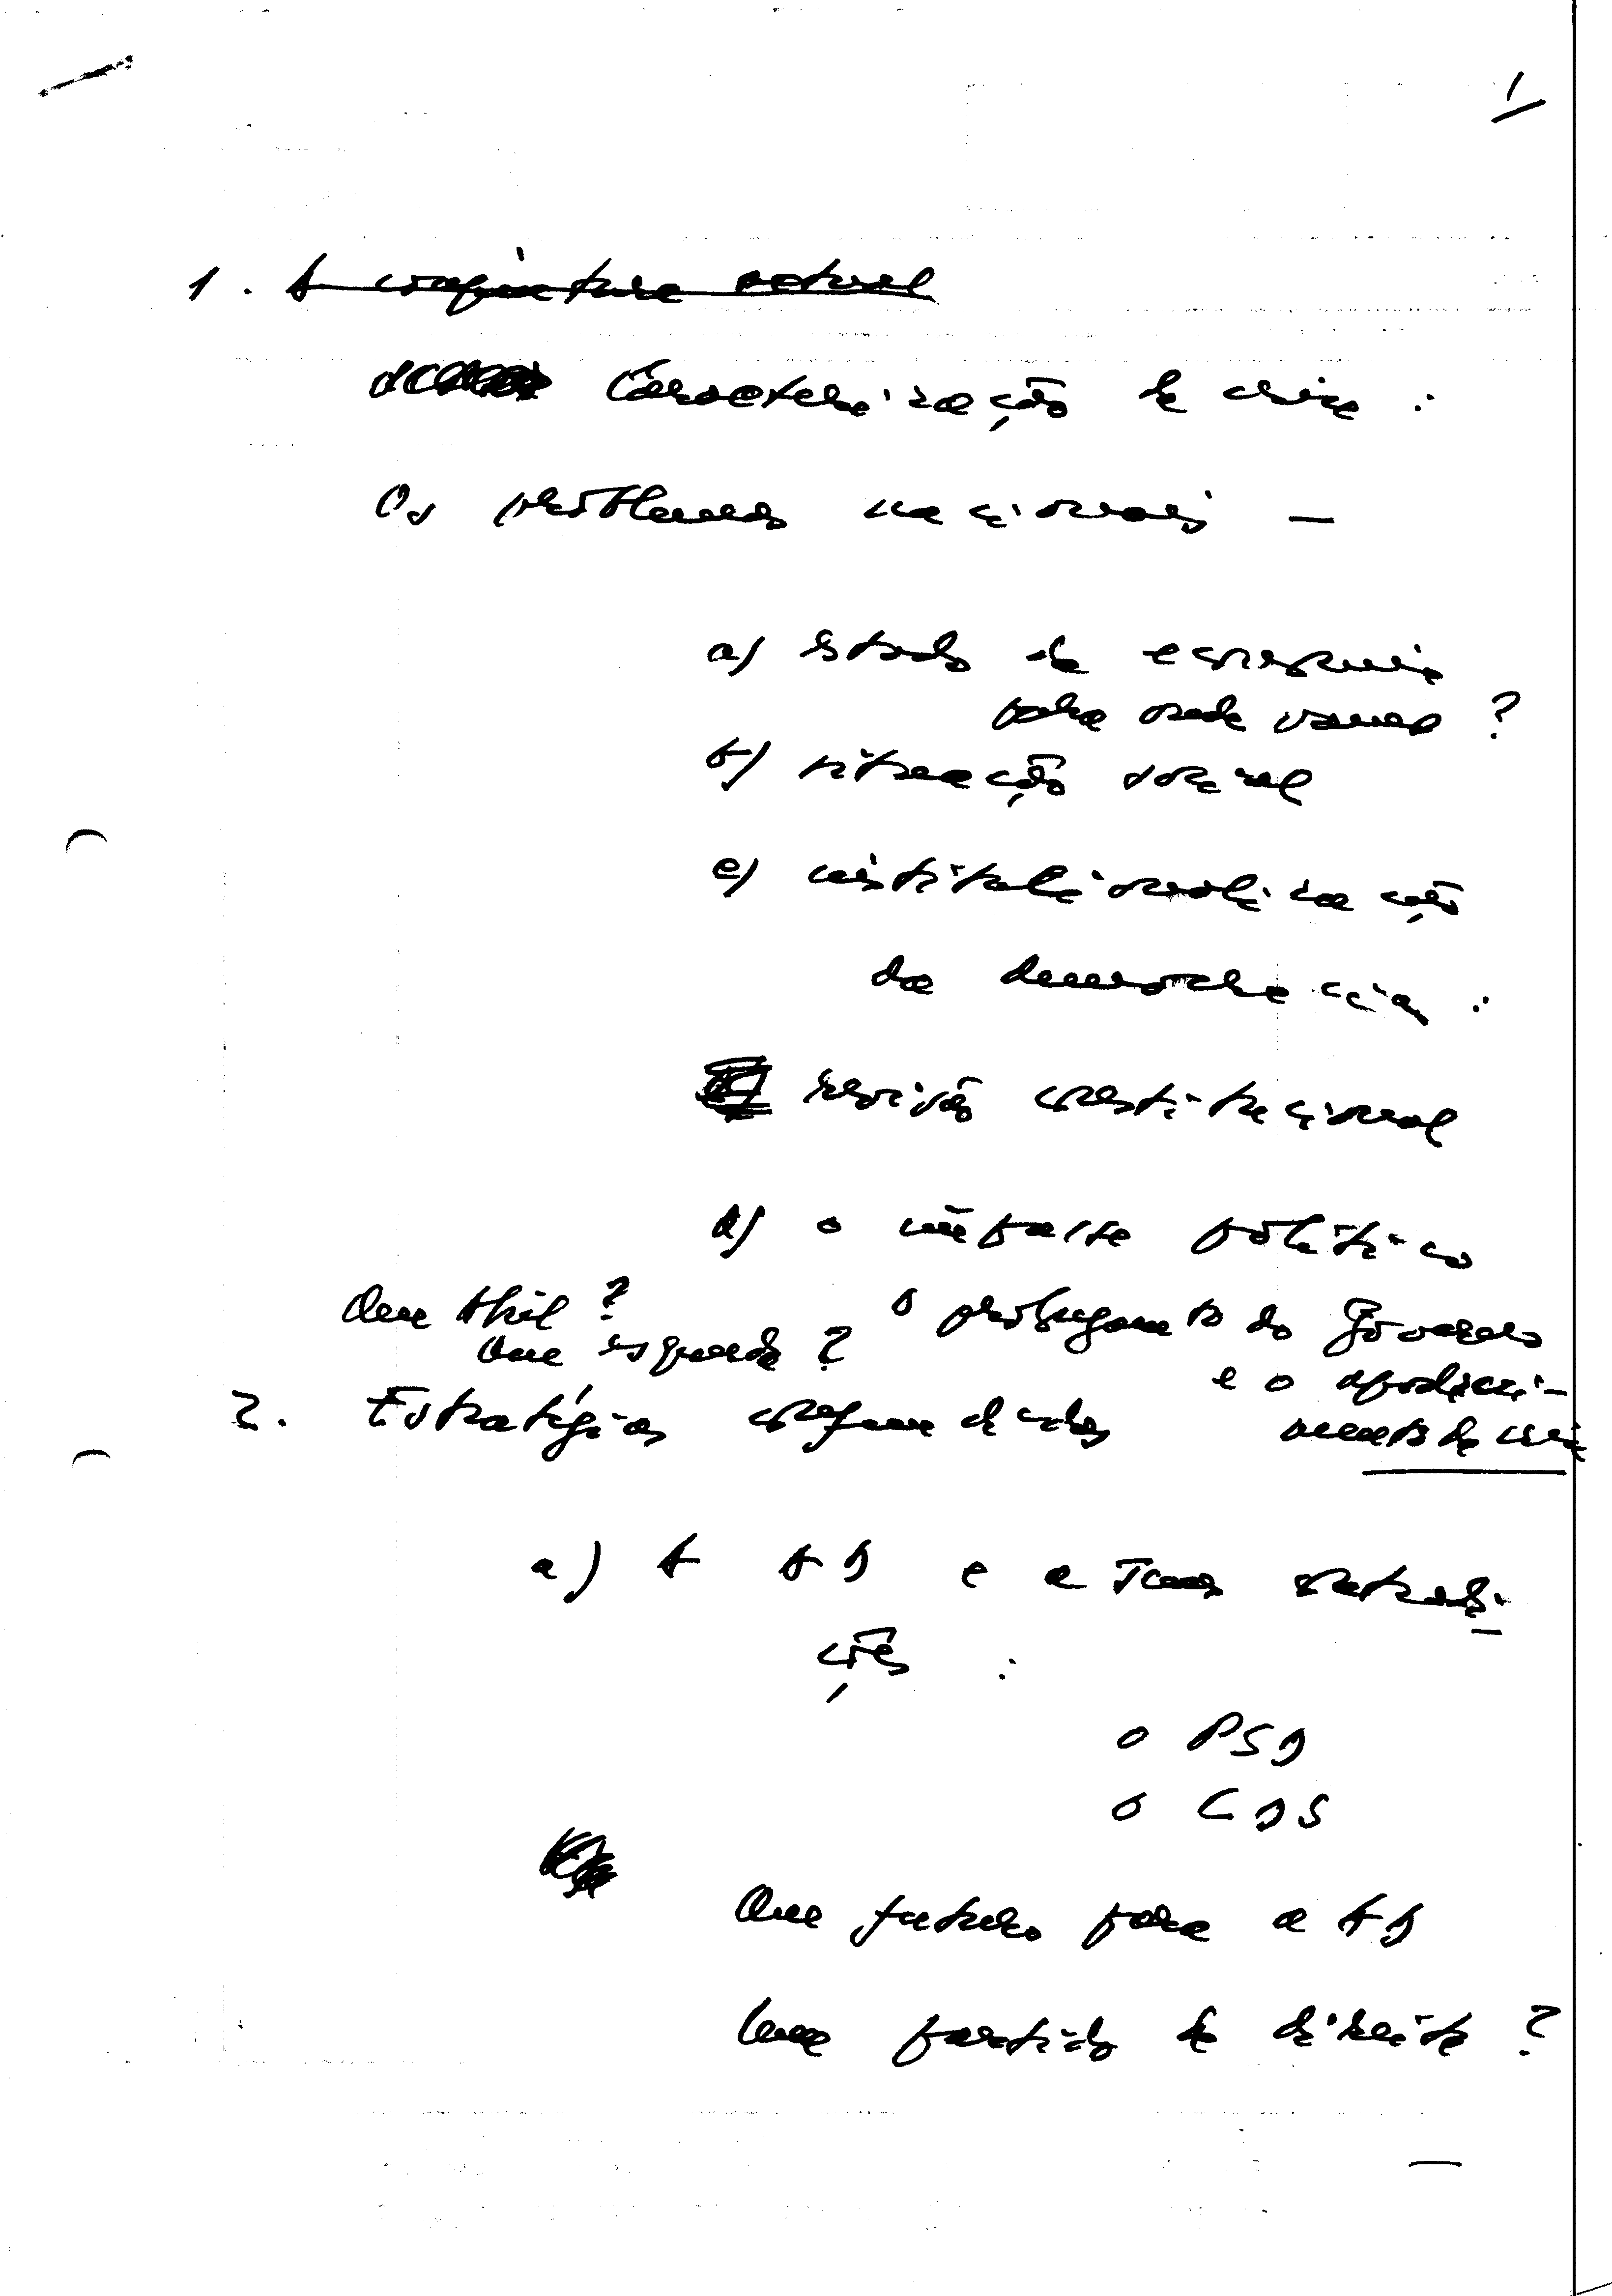 1
1. A conjuntura actual
Caracterização da crise :
Os problemas nacionais —
a) Estado da economia
para onde vamos ?
b) situação social
c) institucionalização
da democracia :
revisão constitucional
d) o impasse político
Que útil ?
o prolongamento do Governo
Que esquerda ?
e o apodreci-
2. Estratégias confundidas
mento da crise
a) A AD e a suas contradi-
ções :
o PSD
o CDS
Que futuro para a AD
Um partido de direita ?